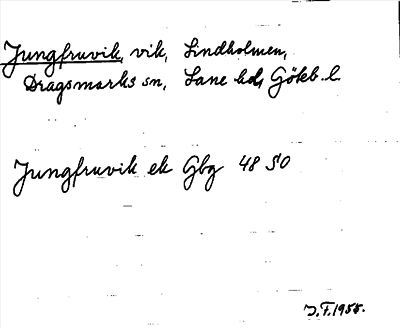 Jungfruvik, vik, Lindholmen,
Dragsmarks sn, Lane hd, Gökb. l.
Jungfruvik ek Gbg 48 SO
J.F. 1955.